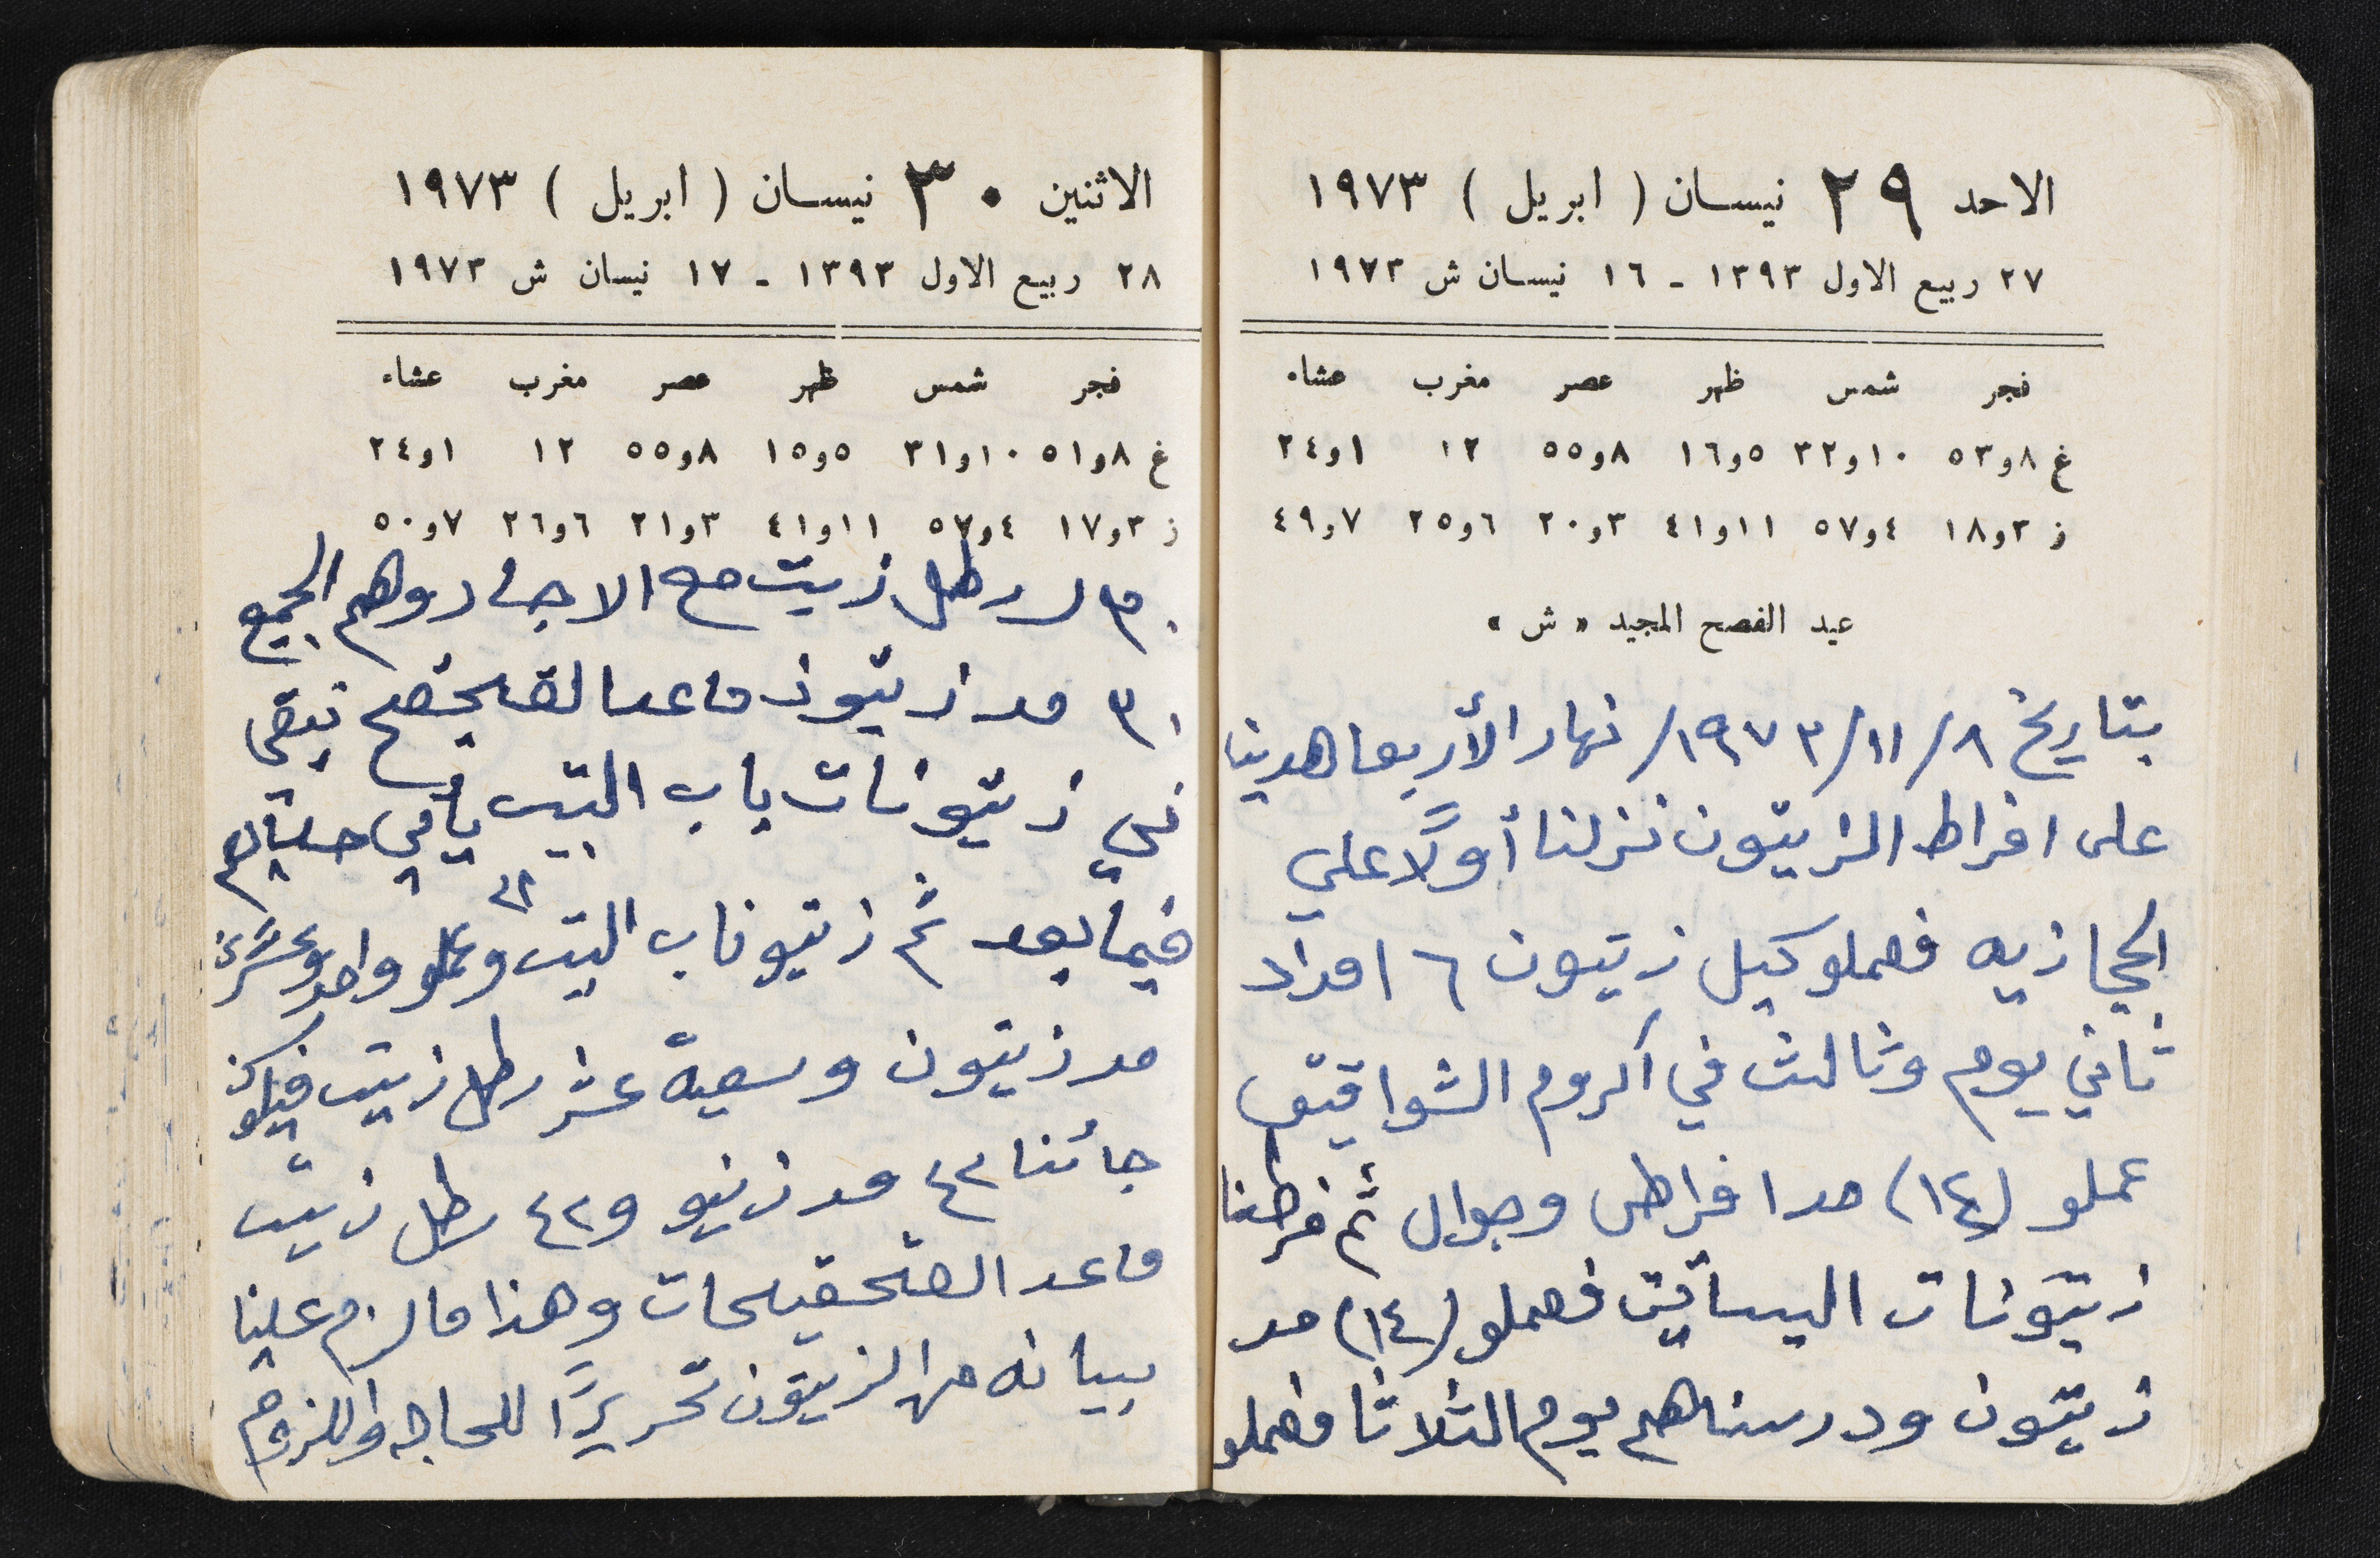 الاحد ٢٩ نيسان ( ابريل ) ١٩٧٣
٢٧ ربيع الاول ١٣٩٣ - ١٦ نيسان ش ١٩٧٣
فجر شمس ظهر عصر مغرب عشاء
غ ٨و٥٣ ١٠و٣٢ ٥و١٦ ٨و٥٥ ١٢ ١و٢٤
ز ٣و١٨ ٤و٥٧ ١١و٤١ ٣و٢٠ ٦و٢٥ ٧و٤٩
عيد الفصح المجيد « ش »
بتاريخ ٨/١١/١٩٧٣/ نهار الأربعا هدينا
على افراط الزيتون نزلنا أولاً على
الحجازيه فعملو كيل زيتون ٦ امداد
ثاني يوم وثالث في اكروم الشواقيق
عملو (١٤) مدا فراطى وجوال ثم فرطنا
زيتونات اليساتين فعملو (١٤) مد
زيتون ودرسناهم يوم الثلاثا فعملو
الاثنين ٣٠ نيسان ( ابريل ) ١٩٧٣
٢٨ ربيع الاول ١٣٩٣ - ١٧ نيسان ش ١٩٧٣
فجر شمس ظهر عصر مغرب عشاء
غ ٨و٥١ ١٠و٣١ ٥و١٥ ٨و٥٥ ١٢ ١و٢٤
ز ٣و١٧ ٤و٥٧ ١١و٤١ ٣و٢١ ٦و٢٦ ٧و٥٠
رطل زيت مع الاجار وهم الجميع
مد زيتون ماعدا تبقى
في زيتونات باب البيت يأتي حسابهم
فيما بعد ثم زيتونا ب البيت وعملو واحد وعشرين
مد زيتون وسبعة عشر رطل زيت فيكون
جائنا ٤٢ مد زنيو و٤٢ رطل زيت
ماعد وهذا ما لزم علينا
بيانه من الزيتون تحريرًا للحاجه واللزوم